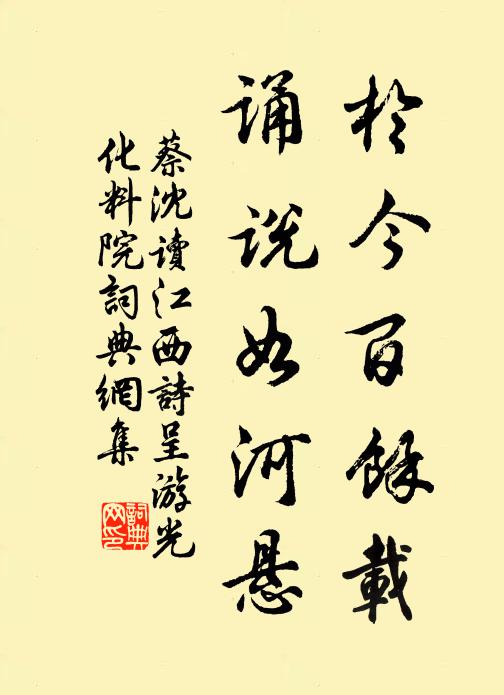 於今百餘載
诵说如河悬
蔡沈讀江西詩呈游光
化料院詞典網集
詞典
网印